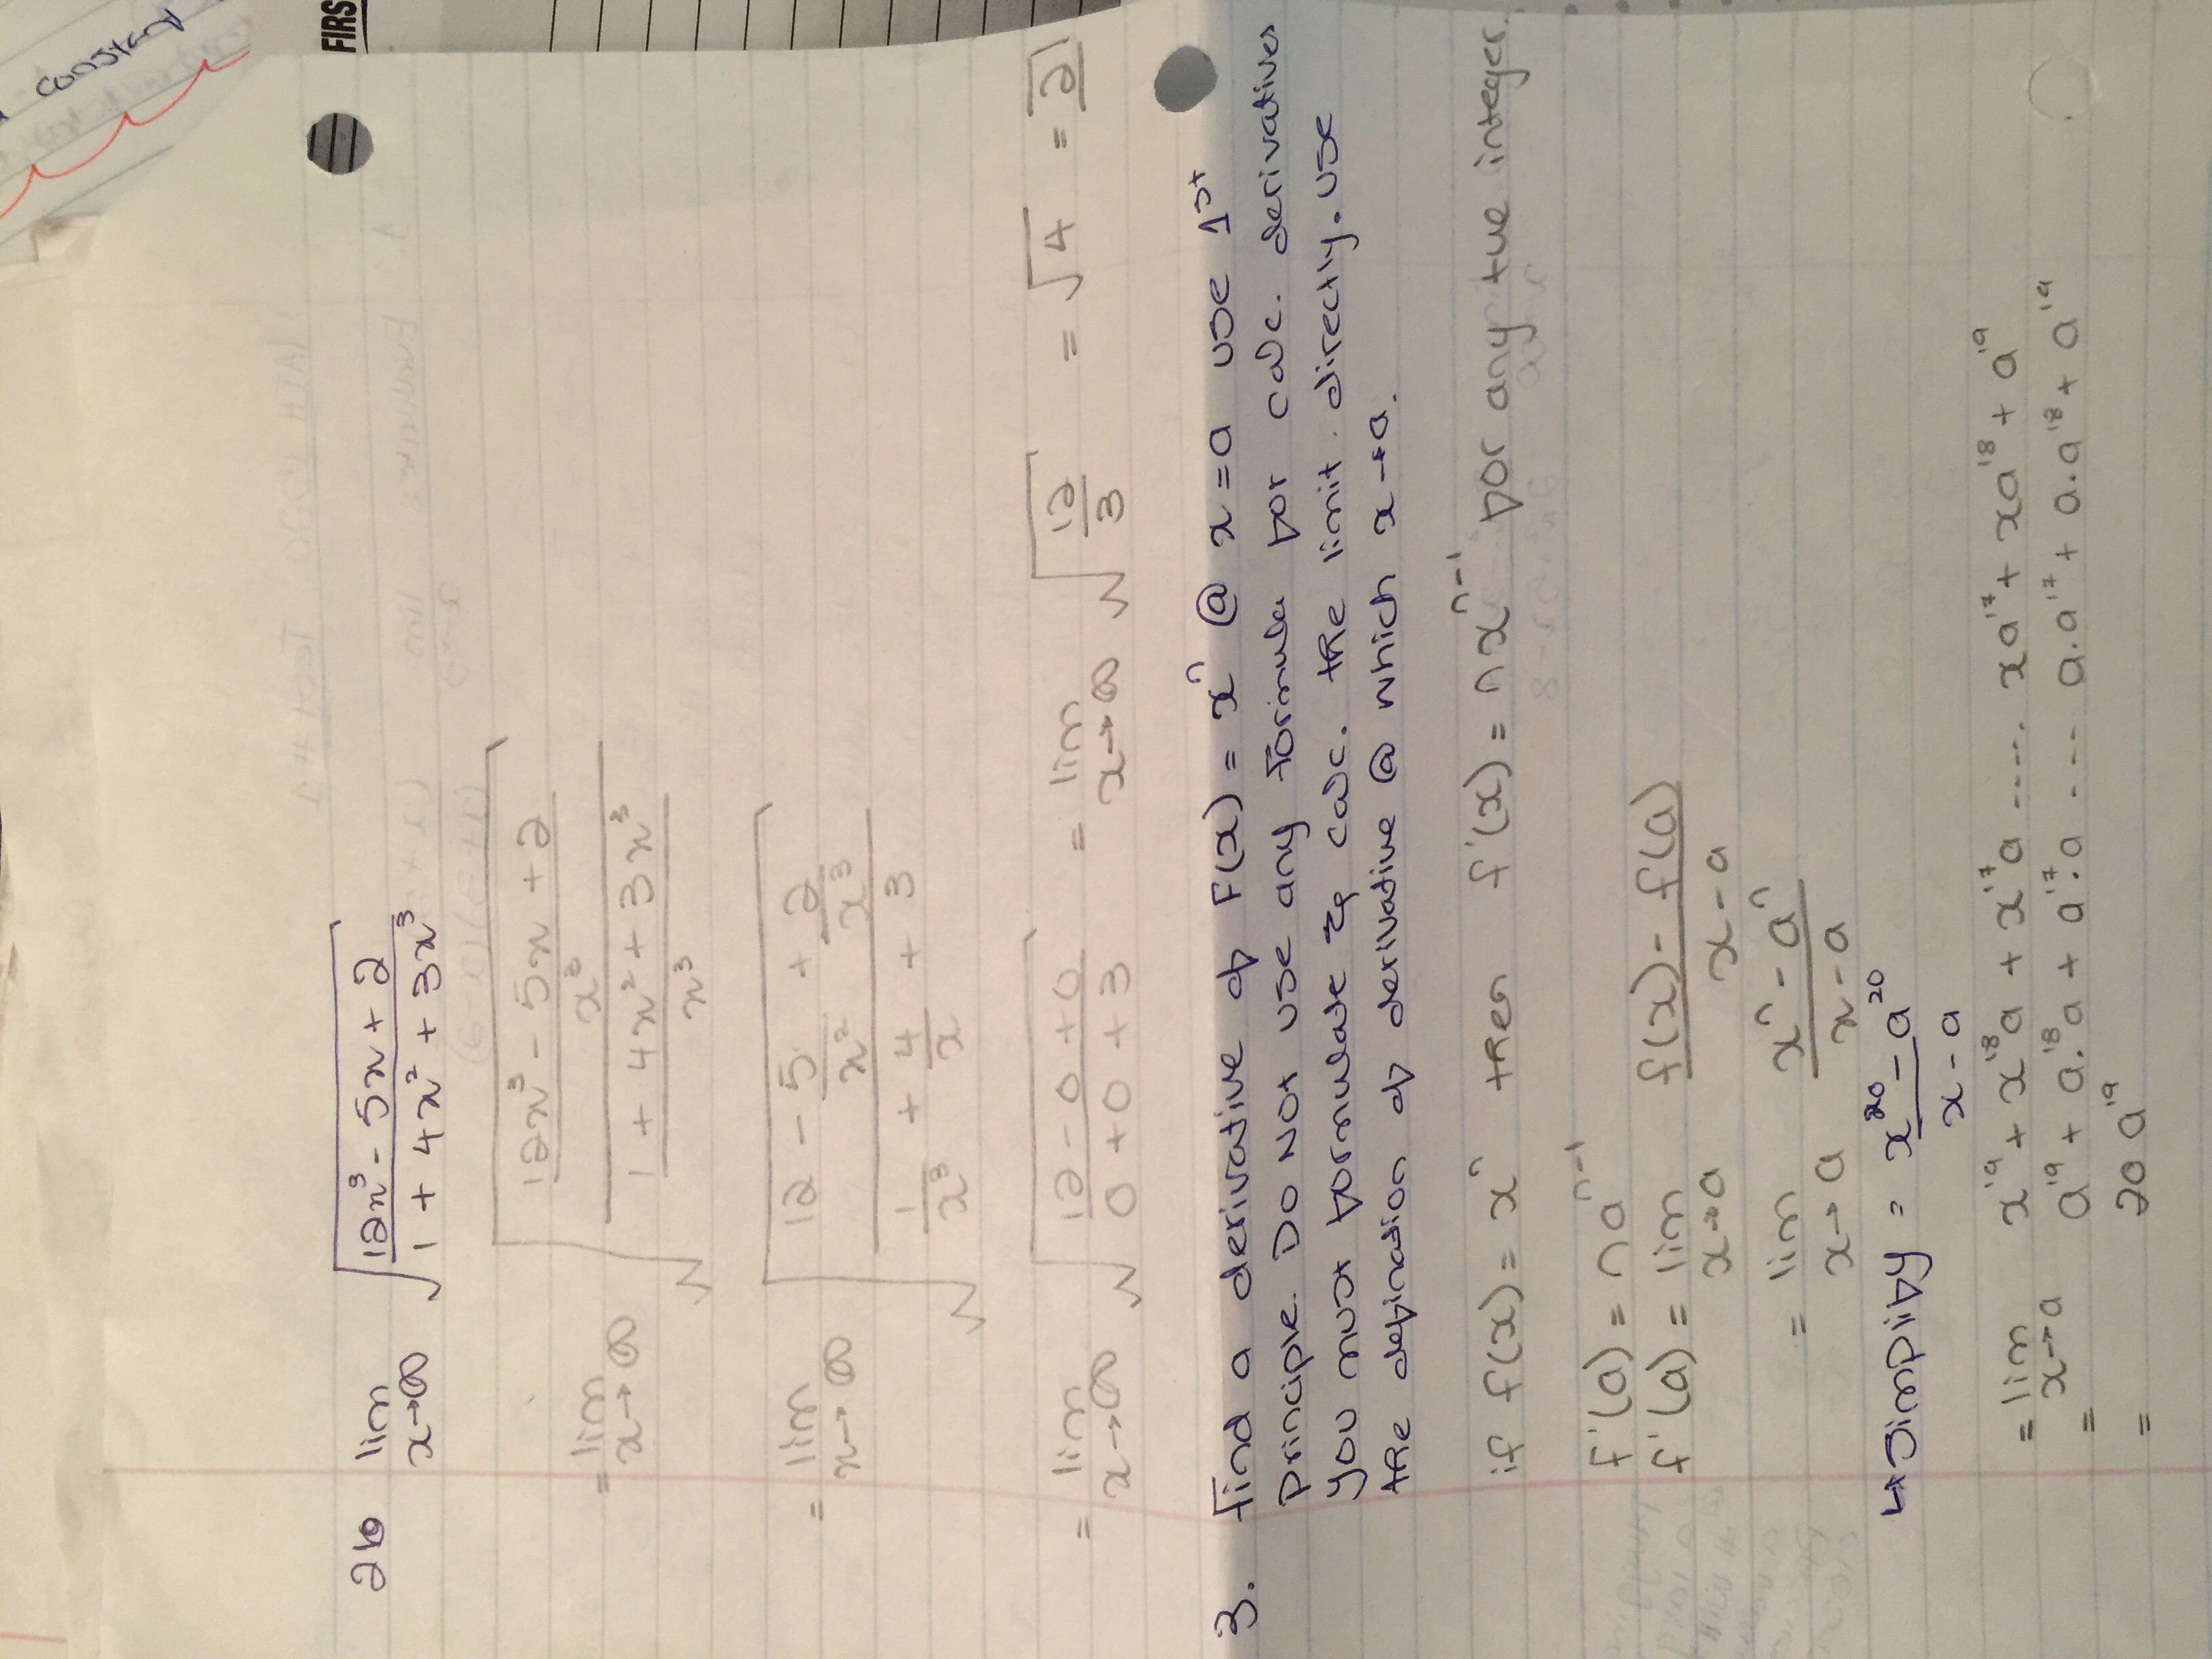 constant
FIRS
2b lim x→∞ √(12x³ - 5x + 2 / 1 + 4x² + 3x³)
= lim x→∞ √((12x³ - 5x + 2 / x³) / (1 + 4x² + 3x³ / x³))
= lim x→∞ √((12 - 5/x² + 2/x³) / (1/x³ + 4/x + 3))
= lim x→∞ √(12 - 0 + 0 / 0 + 0 + 3) = lim x→∞ √(12/3) = √4 = 2
3. Find a derivative of F(x) = xⁿ @ x = a use 1st
principle. DO NOT use any formula for calc. derivatives
you must formulate & calc. the limit directly. use
the defination of derivative @ which x→a.
if f(x) = xⁿ then f'(x) = nxⁿ⁻¹ for any +ve integer.
f'(a) = naⁿ⁻¹
f'(a) = lim x→a f(x) - f(a) / x - a
= lim x→a xⁿ - aⁿ / x - a
↳ Simplify = x²⁰ - a²⁰ / x - a
= lim x→a x¹⁹ + x¹⁸a + x¹⁷a .... xa¹⁷ + xa¹⁸ + a¹⁹
= a¹⁹ + a.¹⁸a + a¹⁷.a ---- a.a¹⁷ + a.a¹⁸ + a¹⁹
= 20a¹⁹